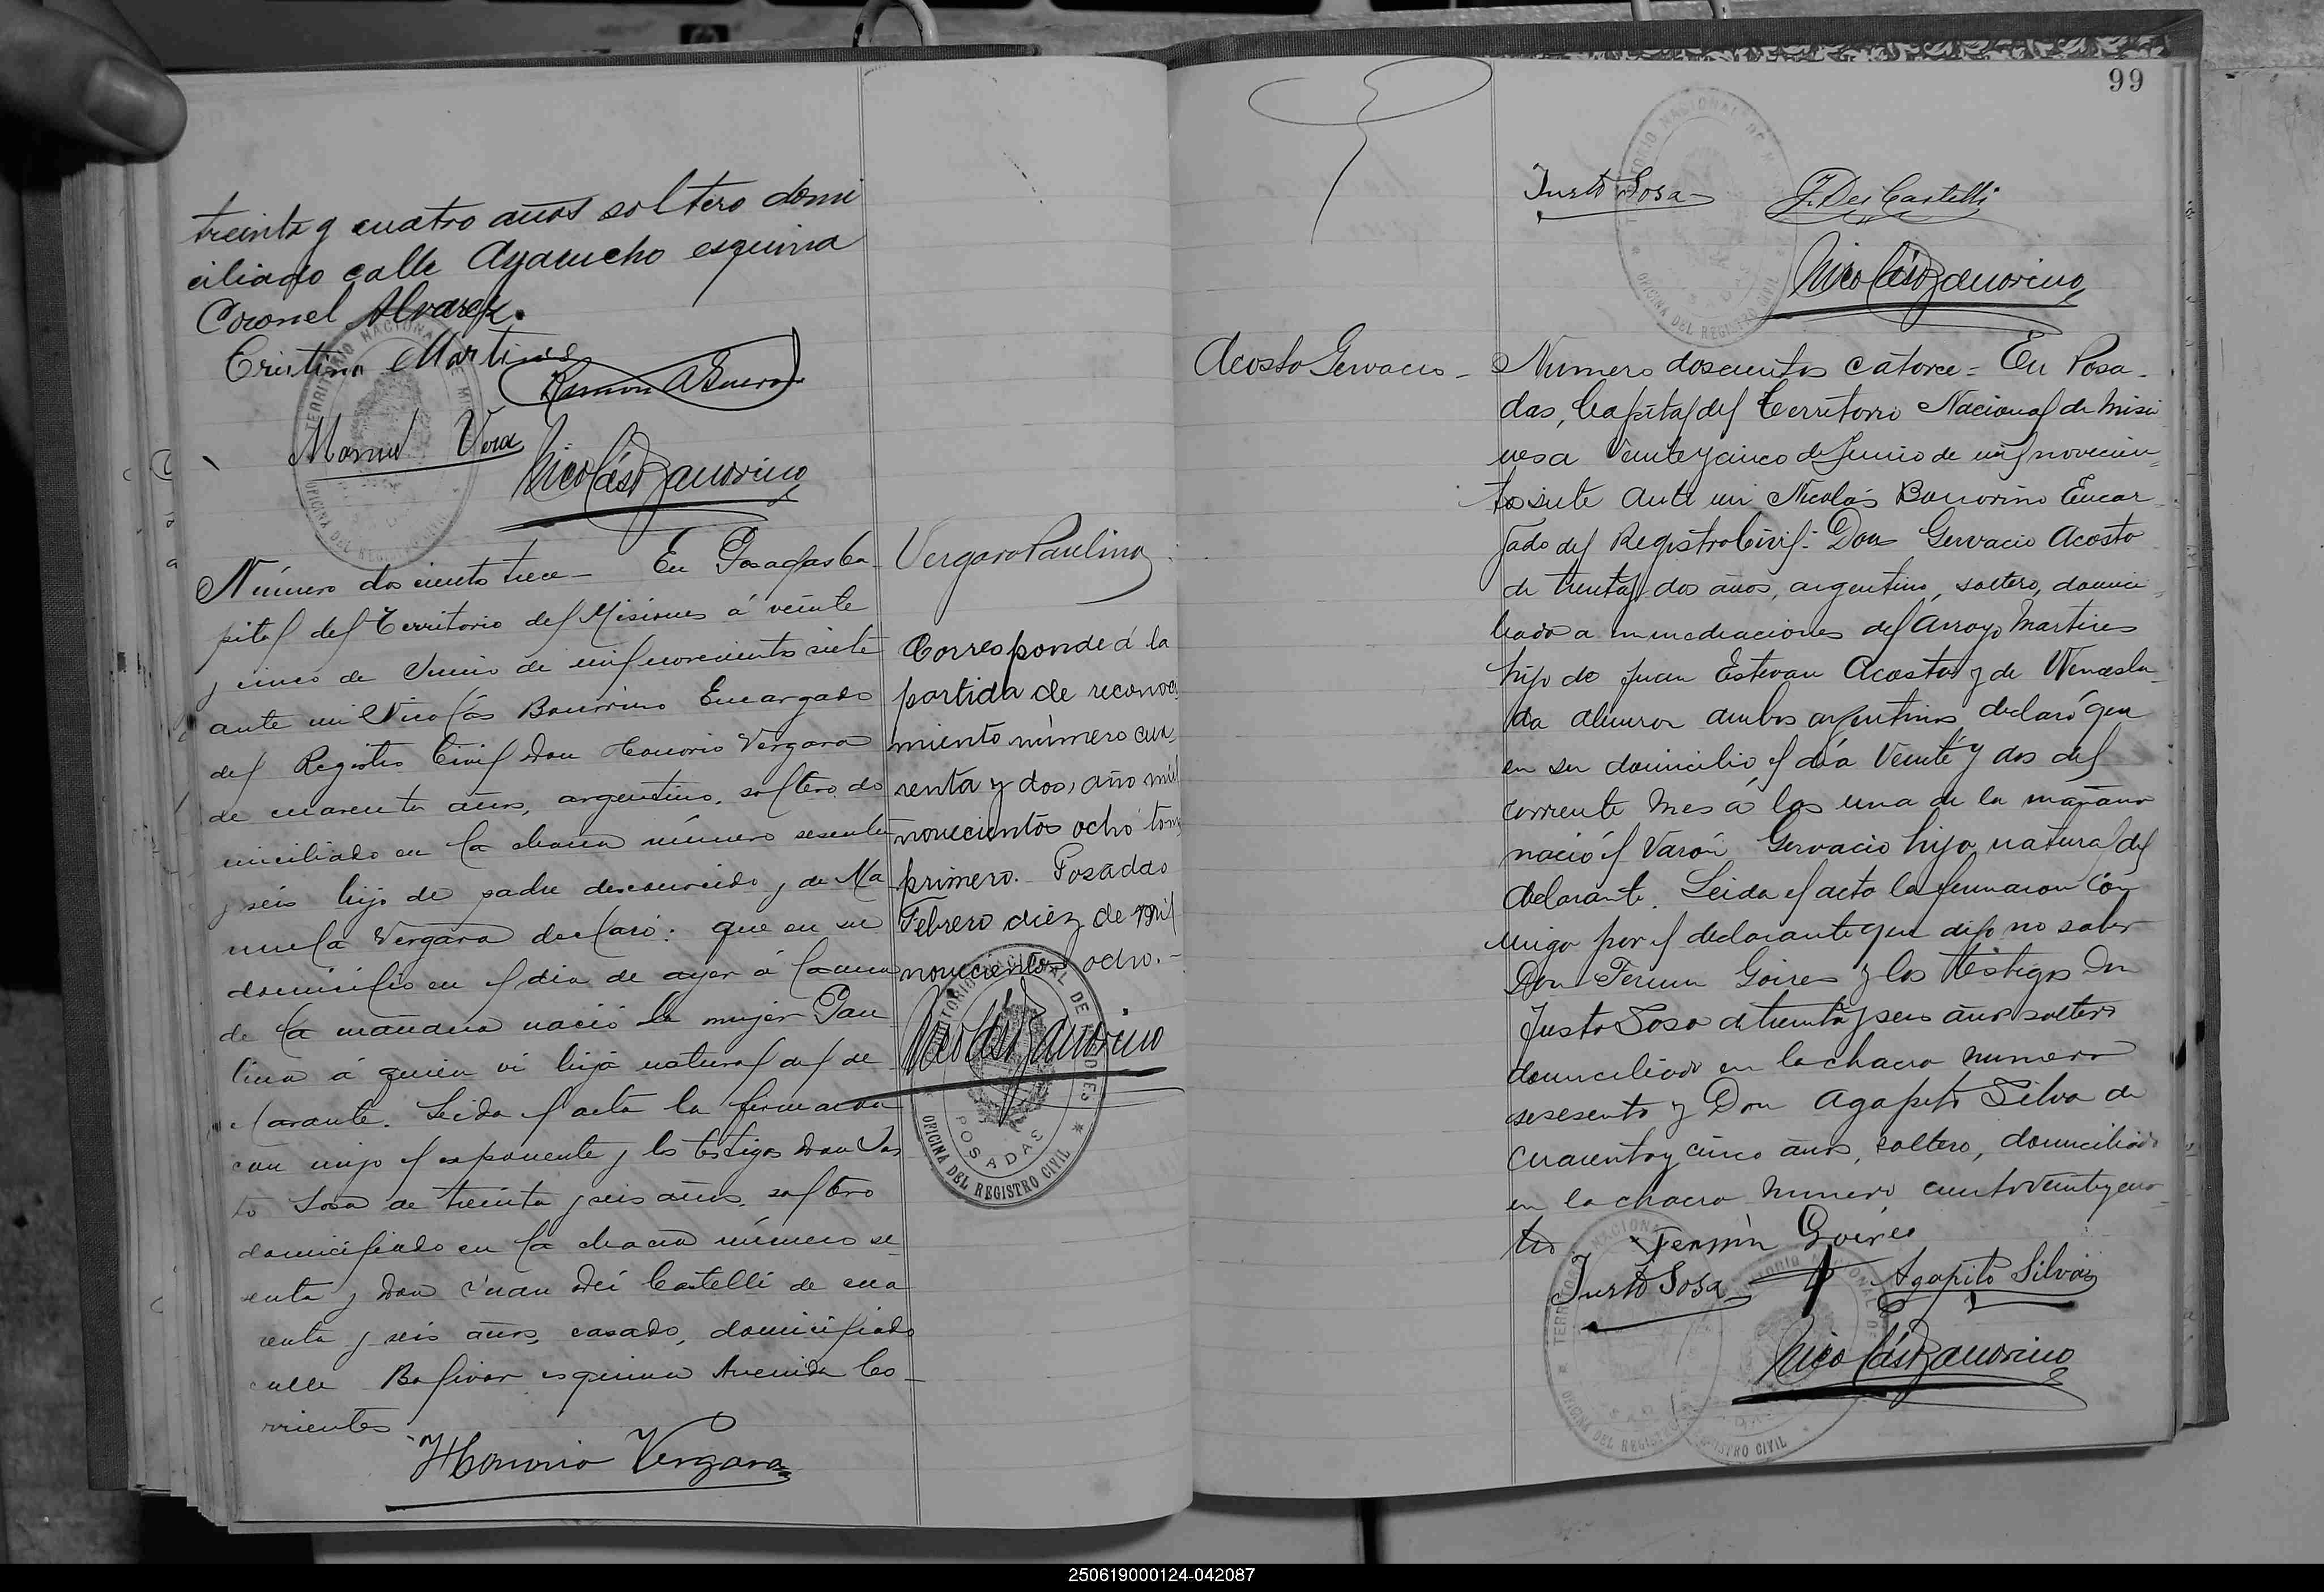 treinta y cuatro años soltero domi
ciliado calle Ayacucho esquina
Coronel Alvarez.
Cristino Martinez
Manuel Vera
Nicolás Bauorino
Número doscientos trece - En Posadas Ca-
pital del Territorio del Misiones á veinte
y cinco de Junio de mil novecientos siete
ante mi Nicolás Bauorino Encargado
del Registro Civil Don Honorio Vergara
de cuarenta años, argentino, soltero do
miciliado en la chacra número sesenta
y seis hijo de padre desconocido y de Ma
nuela Vergara declaró: que en su
domicilio en el dia de ayer á la una
de la mañana nació la mujer Pau
lina á quien vi hija natural del de
clarante. Leida el acta la firmaron
con migo el exponente y los testigos Don Jus
to Sosa de treinta y seis años, soltero
domiciliado en la chacra número se
senta y Don Juan Dei Castelli de cua
renta y seis años, casado, domiciliado
calle Bolivar esquina Avenida Co-
rrientes
Honorio Vergara
Vergara Paulina
Corresponde á la
partida de reconoci
miento número cua-
renta y dos, año mil
novecientos ocho tomo
primero. Posadas
Febrero diez de mil
novecientos ocho. -
Nicolás Bauorino
TERRITORIO NACIONAL DE MISIONES
POSADAS
OFICINA DEL REGISTRO CIVIL
99
Justo Sosa J. Dei Castelli
Nicolás Bauorino
Acosta Gervacio -
Número doscientos catorce = En Posa-
das, Capital del Territorio Nacional de Misio
nes a veinte y cinco de Junio de mil novecien-
tos siete ante mi Nicolás Bauorino Encar
gado del Registro Civil: Don Gervacio Acosta
de treinta y dos años, argentino, soltero, domici-
liado a inmediaciones del Arroyo Martires
hijo de Juan Estevan Acosta y de Wencesla-
da ambos argentinos, declaró que
en su domicilio, el día veinte y dos del
corriente mes á las una de la mañana
nació el varón Gervacio hijo natural del
declarante. Leida el acta la firmaron con
migo por el declarante que dijo no saber
Don Fermin Goires y los testigos Don
Justo Sosa de treinta y seis años soltero
domiciliado en la chacra numero
sesesenta y Don Agapito Silva de
cuarenta y cinco años, soltero, domiciliado
en la chacra numero ciento veinte y cua-
tro
Fermin Goires
Justo Sosa Agapito Silva
Nicolás Bauorino
250619000124-042087